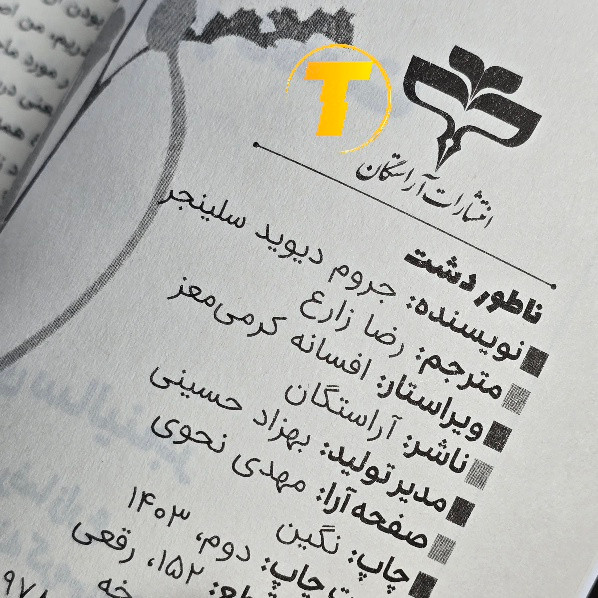 T
انتشارات آراستگان
ناطور دشت
نویسنده: جروم دیوید سلینجر
مترجم: رضا زارع
ویراستار: افسانه کرمی‌معز
ناشر: آراستگان
مدیر تولید: بهزاد حسینی
صفحه‌آرا: مهدی نحوی
چاپ: نگین
چاپ: دوم، ۱۴۰۳
۱۵۲، رقعی
۹۷۸